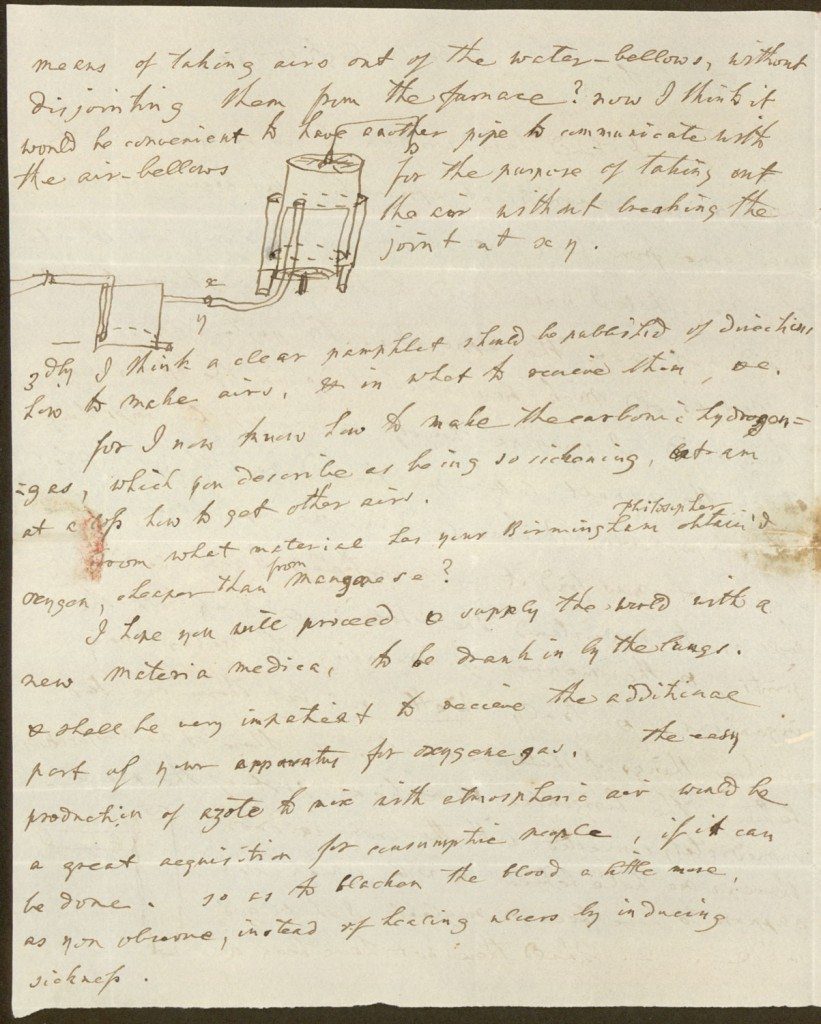 means of taking airs out of the water-bellows, without
disjointing them from the furnace? now I think it
would be convenient to have another pipe to communicate with
the air-bellows for the purpose of taking out
the air without breaking the
joint at x y.
x
y
3dly I think a clear pamphlet should be published of directions
how to make airs, & in what to recieve them, &c.
for I now know how to make the carbonic hydrogen=
=gas, which you describe as being so sickening, but am
at a loss how to get other airs.
philosopher
From what material has your Birmingham obtain'd
from
oxygen, cheaper than manganese?
I hope you will proceed & supply the world with a
new materia medica, to be drank in by the lungs.
& shall be very impatient to recieve the additional
part of your apparatus for oxygene gas. the easy
production of azote to mix with atmospheric air would be
a great acquisition for consumptive people, if it can
be done. so as to blacken the blood a little more,
as you observe, instead of healing ulcers by inducing
sickness.